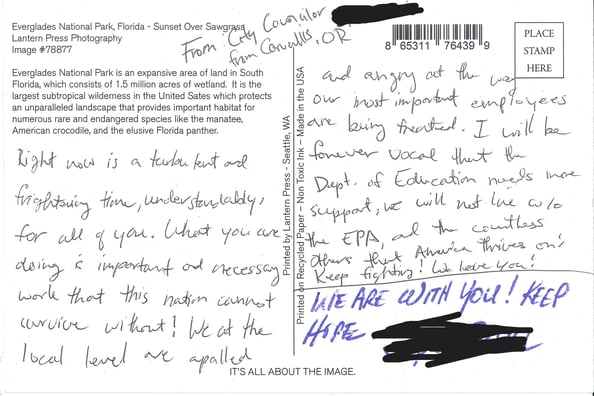 Everglades National Park, Florida - Sunset Over Sawgrass
Lantern Press Photography
Image #78877
From: City Councilor
from Corvallis, OR
8 65311 76439 9
PLACE
STAMP
HERE
Everglades National Park is an expansive area of land in South
Florida, which consists of 1.5 million acres of wetland. It is the
largest subtropical wilderness in the United Sates which protects
an unparalleled landscape that provides important habitat for
numerous rare and endangered species like the manatee,
American crocodile, and the elusive Florida panther.
Right now is a turbulent and
frightening time, understandably,
for all of you. What you are
doing is important and necessary
work that this nation cannot
survive without! We at the
local level are apalled
Printed by Lantern Press - Seattle, WA
Printed on Recycled Paper - Non Toxic Ink - Made in the USA
and angry at the way
our most important employees
are being treated. I will be
forever vocal that the
Dept. of Education needs more
support, we will not live w/o
the EPA, and the countless
others that America thrives on!
Keep fighting! We love you!
WE ARE WITH YOU! KEEP
HOPE
IT'S ALL ABOUT THE IMAGE.